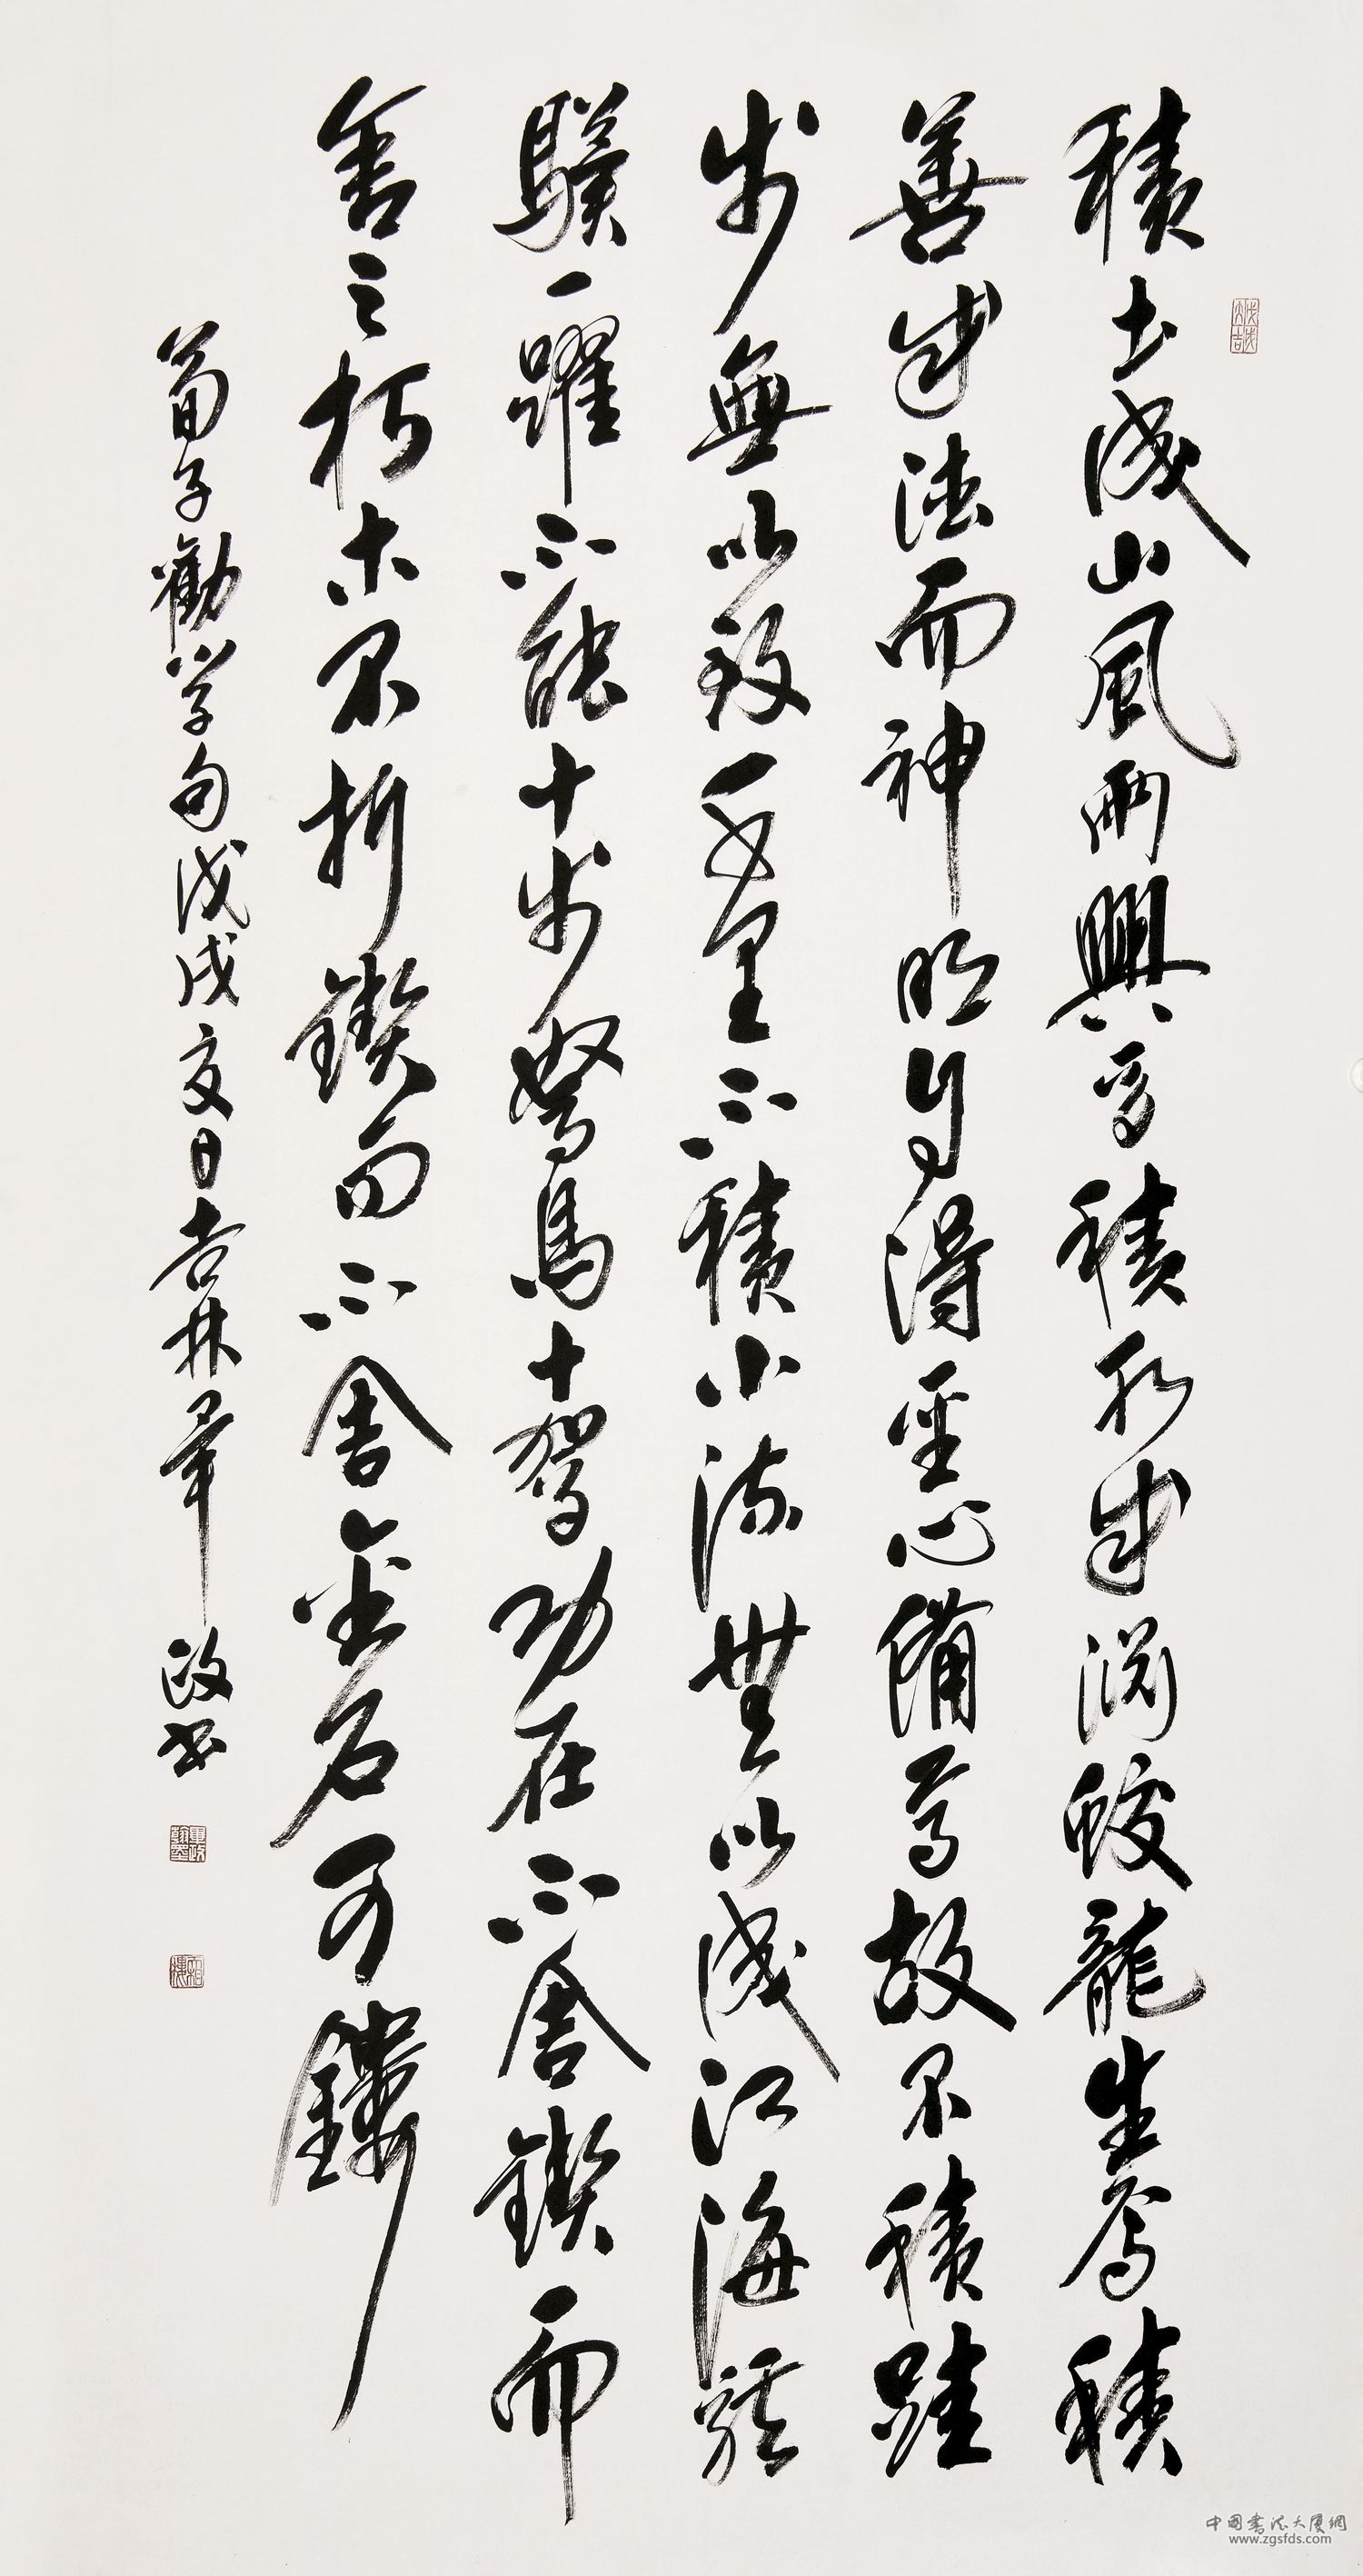 積土成山風雨興焉積水成淵蛟龍生焉積
善成德而神明自得聖心備焉故不積跬
步無以致千里不積小流無以成江海騏
驥一躍不能十步駑馬十駕功在不舍鍥而
舍之朽木不折鍥而不舍金石可鏤
荀子勸學句戊戌夏日吉林軍政書
中国書法大厦網
www.zgsfds.com